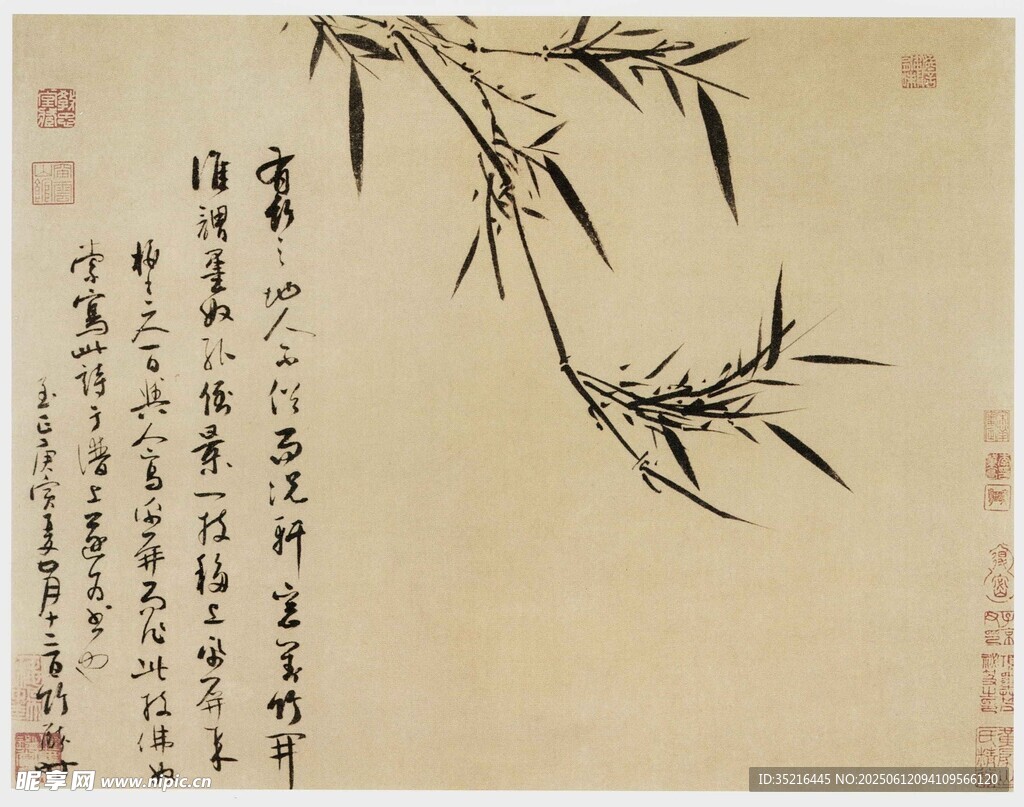 有竹之地人不俗而況軒窓對竹開
誰謂墨奴能倒景一枝移上紙屏來
一日與人寫紙屏而作此枝佛奴
索寫此詩于譜上遂為書也
至正庚寅夏四月十二日竹醉
昵享网 www.nipic.cn
ID:35216445 NO:20250612094109566120